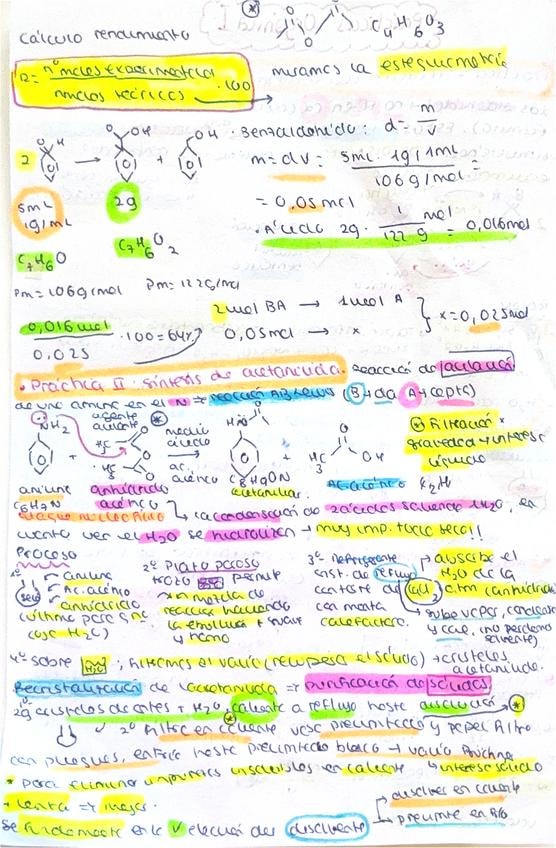 Cálculo rendimiento
C4H6O3
R = nº moles experimentales / moles teóricos · 100
miramos la estequiometría
2
OH
OH
+
· Benzaldehído: d = m/v
m = d·v = 5mL · 1g/1mL / 106 g/mol
5mL
1g/mL
2g
= 0,05 mol
· Ácido 2g · 1 mol / 122 g = 0,016mol
C7H6O
C7H6O2
Pm = 106g/mol Pm = 122g/mol
2mol BA → 1mol A
0,05mol → x
x = 0,025mol
0,016mol / 0,025 · 100 = 64%
· Práctica II: síntesis de acetanilida. Reacción de
de una amina en el N ⇒ reacción AB Lewis (B→da A→cepta)
NH2
agente
medio
ácido
ac. acético
+
OH
Filtración
gravedad → interesa
líquido
anilina
C6H7N
anhídrido
acético
C8H9ON
acetanilida
Ac. acético
ataque nucleofílico
la condensación de 2 ácidos saliendo H2O, en
cuanto ven el H2O se hidrolizan → muy imp. todo seco!!
Proceso
1º
seco
anilina
Ac. acético
anhídrido
(último para q no
coja H2O)
2º Plato poroso
trozo permite
reacción haciendo
la ebullición + suave
y homo
3º Refrigerante
sist. de reflujo
con manta
calefactora.
absorbe el
H2O de la
atm (anhídrido)
sube vapor, condensa
y cae, (no perdemos
solvente)
4º sobre H2O; filtramos al vacío (recuperar el sólido) → cristales
acetanilida.
Recristalización de la acetanilida ⇒ purificación de sólidos
2g cristales de antes + H2O, caliente a reflujo hasta disolución →
2º Filtro en caliente vaso precipitado y papel filtro
con pliegues, enfrío hasta precipitado blanco → vacío Büchner
* para eliminar impurezas insolubles en caliente
interesa sólido
+ lenta ⇒ + mejor.
Se fundamenta en la elección del disolvente
disolver en caliente
precipite en frío